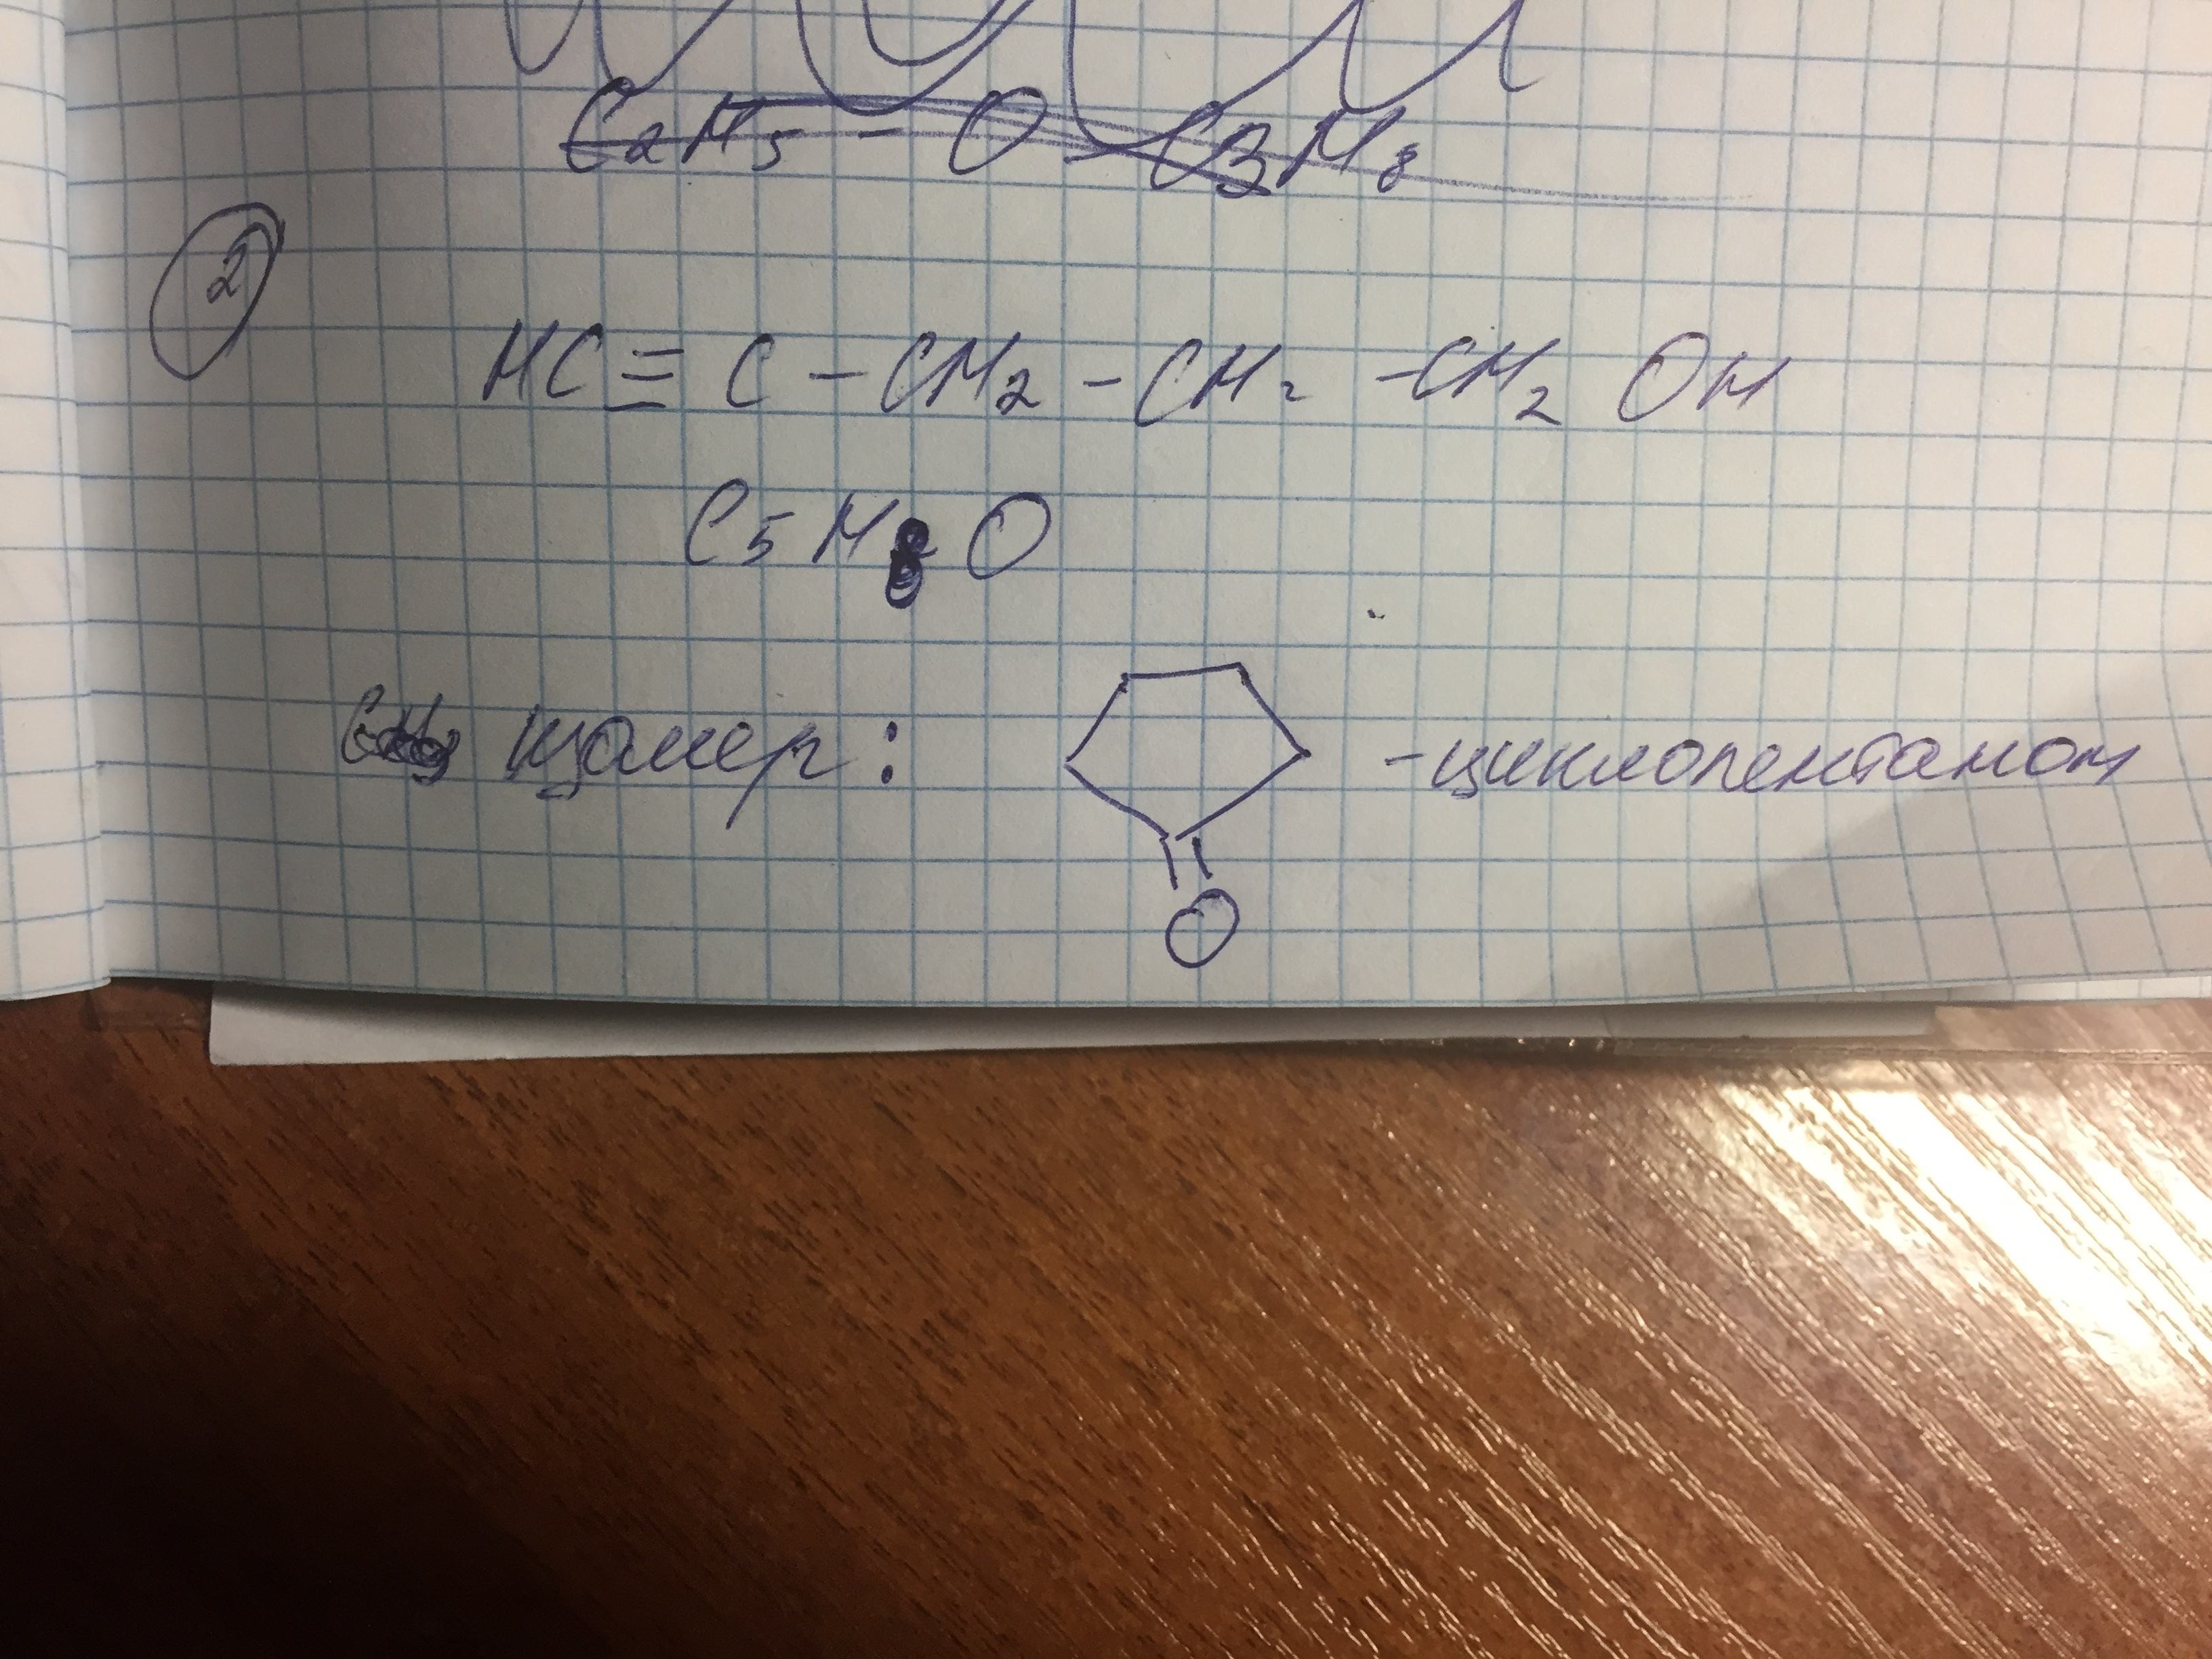 C2H5 - O - C3H8
2
HC ≡ C - CH2 - CH2 - CH2 OH
C5H8O
изомер: - циклопентанон
O